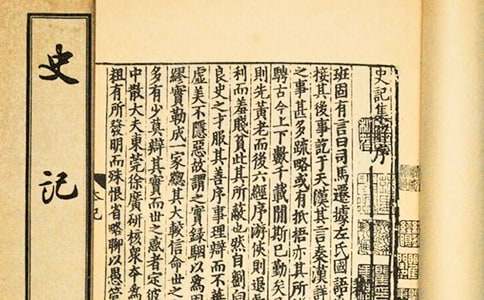 史記
史記集解序
班固有言曰司馬遷據左氏國語
接其後事訖于天漢其言秦漢詳
之事甚多疏略或有抵捂亦其所
騁古今上下數千載間斯已勤矣
則先黃老而後六經序游俠則退
利而羞賤貧此其所蔽也然自劉向
良史之才服其善序事理辯而不華
虛美不隱惡故謂之實錄駰以爲固
繆實勒成一家總其大較信命世之
多有少莫辯其實而世之惑者定彼
中散大夫東莞徐廣研核衆本爲
粗有所發明而殊恨省略聊以愚管